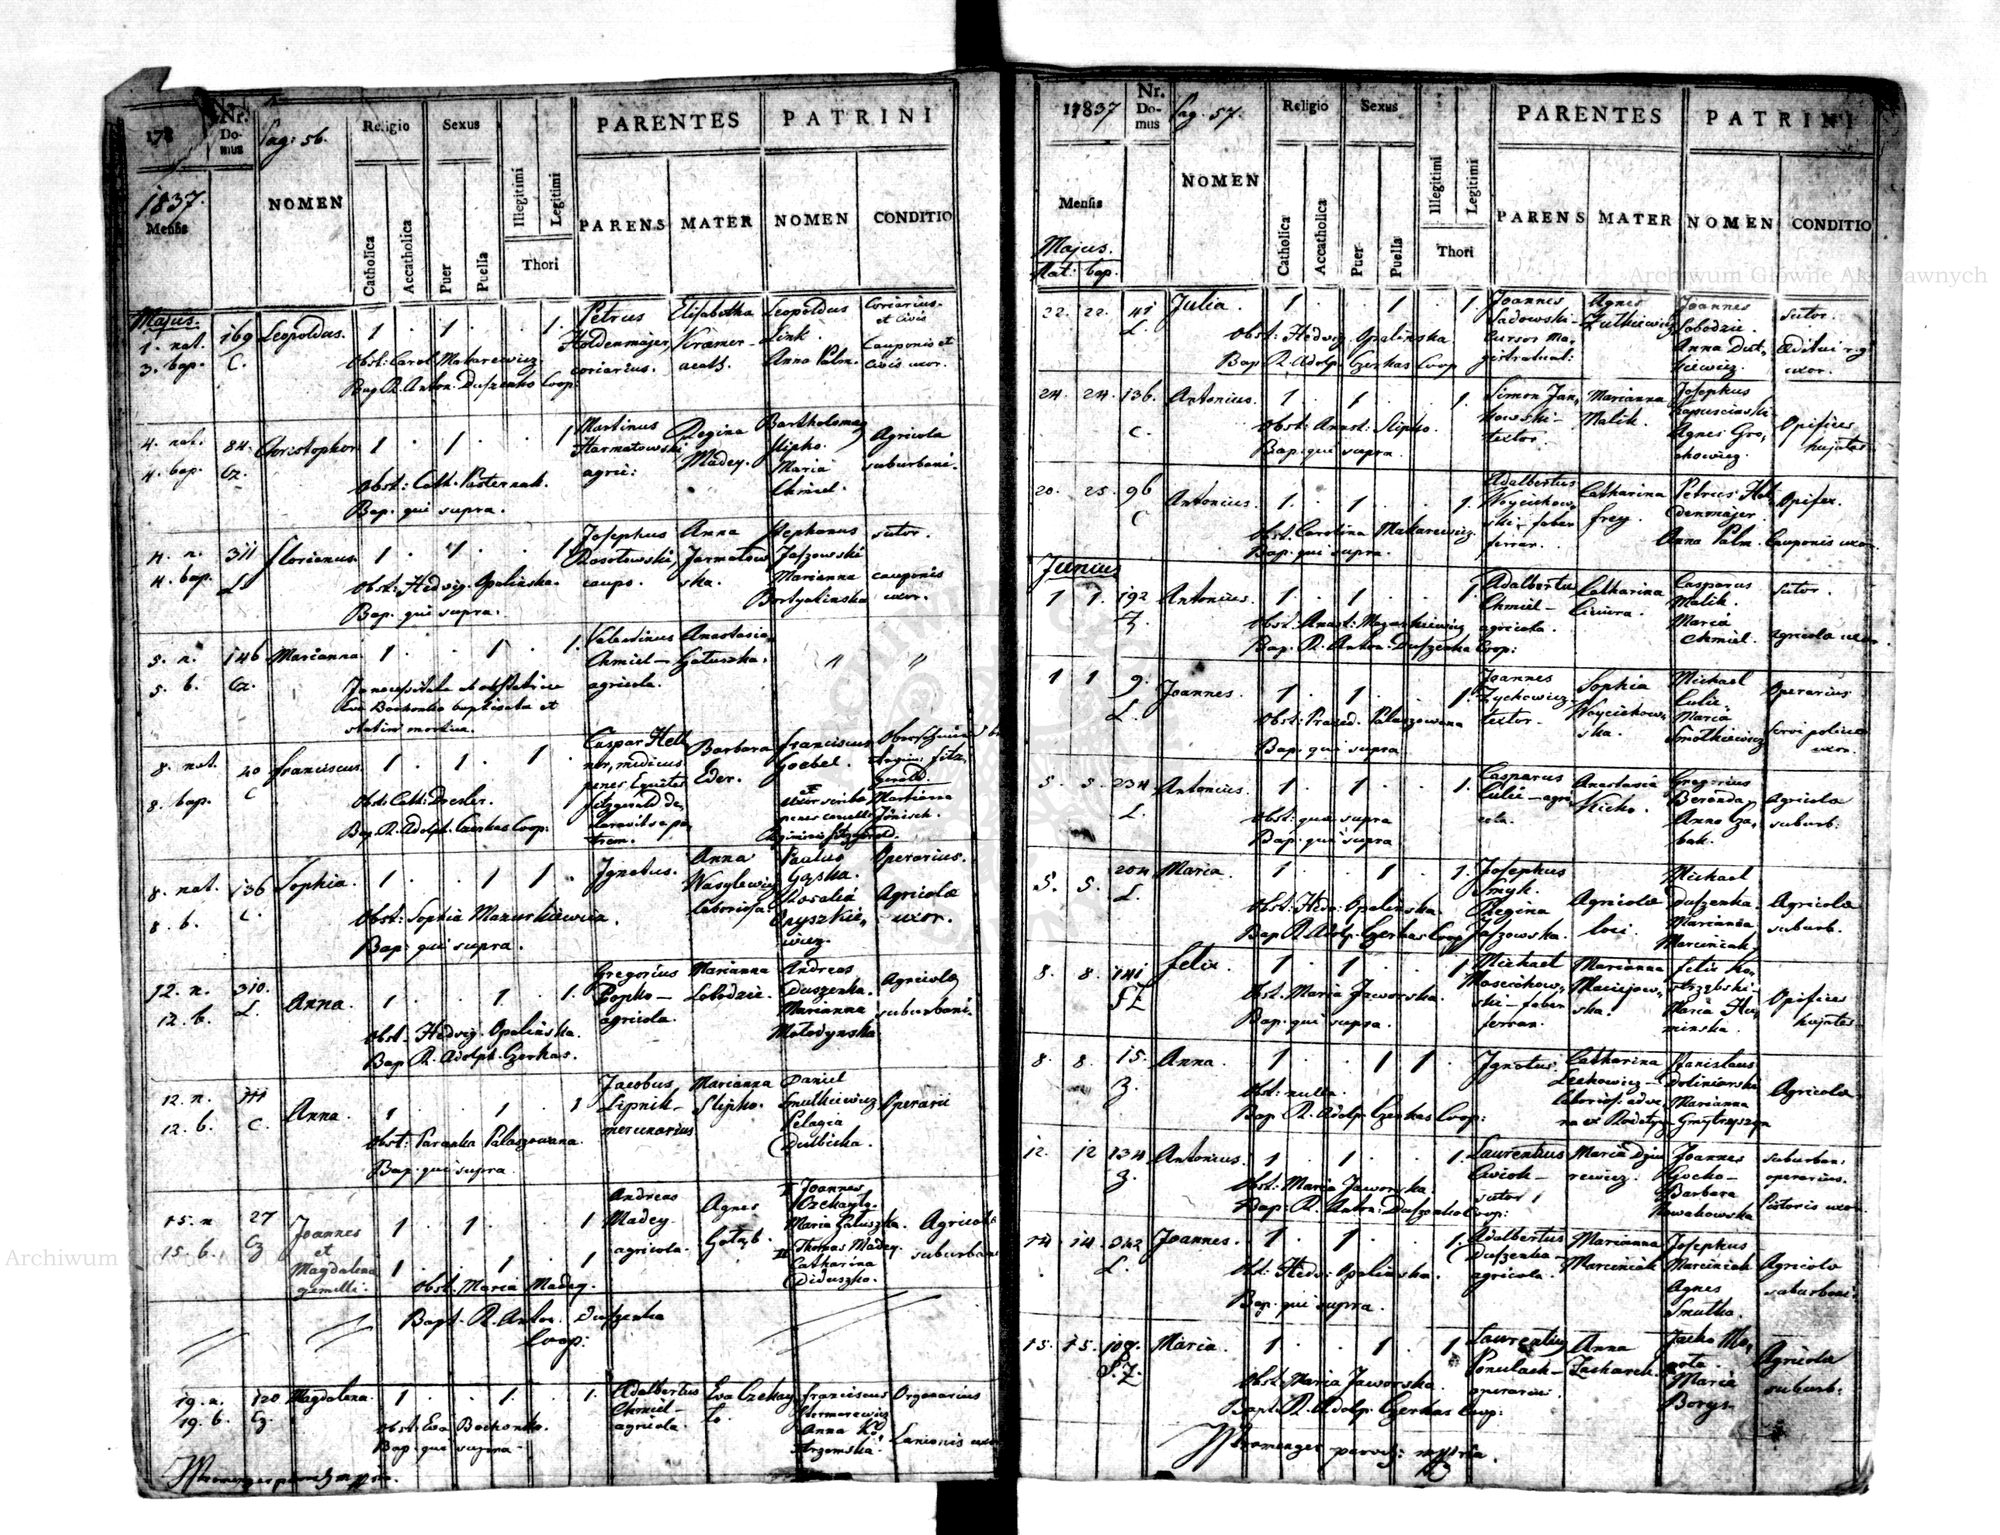 178
Nr. Do-mus
Pag: 56.
Religio
Sexus
Illegitimi
Legitimi
PARENTES
PATRINI
1837.
Mensis
NOMEN
Catholica
Accatholica
Puer
Puella
Thori
PARENS
MATER
NOMEN
CONDITIO
Majus.
1. nat. 169 Leopoldus. 1 . 1 . . 1 Petrus Elisabetha Leopoldus Coriarius et Civis
3. bap. C. Holdenmajer, Kramer- Link. Cauponis et
Obst: Carol. Makarewicz coriarius. acath. Anna Palm. civis uxor.
Bap R. Anton. Duszenko Coop:
4. nat. 84. Christophor 1 . 1 . . 1 Martinus Regina Bartholomaeus Agricola
4. bap. Cz. Harmatowski Madey. Slipko. suburbani.
Obst: Cath. Pasternak. agric: Maria
Bap. qui supra. Chmiel.
4. n. 311 Florianus. 1 . 1 . . 1 Josephus Anna Stephanus sutor.
4. bap. L Rosolowski Jarmatow Jaszowski
Obst: Hedvig. Opalinska. caupo. ska. Marianna cauponis
Bap. qui supra. uxor.
5. n. 146 Marianna 1 . . 1 . 1. Valentinus Anastasia " "
5. b. Cz. Chmiel- Gatuszka.
In necessitate ab obstetrice agricola.
Eva Bochonko baptisata et
statim mortua.
8. nat. 40 Franciscus 1 . 1 . 1 Caspar Hell Barbara Franciscus
8. bap. C ner, medicus Eder. Goebel.
Obst: Cath: Dresler. penes Equites
Bap. R. Adolph. Czerkas Coop: Fitzgerald de,
claravit se pa,
trem.
et uxor scriba Marianna
Jönisch.
Regiminis Fitzgerald.
8. nat. 136 Sophia. 1 . . 1 1 Ignotus. Anna Paulus Operarius.
8. b. C. Wasylewicz Gąska.
Obst: Sophia Mazurkiewicz laboriosa. Rosalia Agricolae
Bap: qui supra. Oryszkie, uxor.
wicz.
12. n. 310. Anna. 1 . . 1 . 1. Gregorius Marianna Andreas Agricola
12. b. L. Popko- Lobodzic. Duszenka. suburbani.
Obst- Hedvig. Opalinska. agricola. Marianna
Bap R. Adolph. Czerkas. Molodynska
12. n. 111 Anna. 1 . . 1 . 1 Jacobus Marianna Daniel Operarii
12. b. C. Lipnik- Slipko. Smutkiewicz
Obst: Paranka Palaszowana. mercenarius Pelagia
Bap. qui supra Dubicka.
15. n 27 Joannes 1 . 1 . . 1 Andreas Agnes I Joannes
15. b. Cz et Madey Gołąb. Maria Gatuszka. Agricola
Magdalena 1 . . 1 . 1 agricola. II Thomas Madey suburbani
gemelli. Catharina
Obst: Maria Madey. Diduszko.
Bapt. R. Anton. Duszenka
Coop:
19. n. 120 Magdalena. 1 . . 1. . 1. Adalbertus Eva Czekay Franciscus Organarius
19. b. Cz. Chmiel- to.
Obst: Eva Bochonko. agricola. Anna Ko
Bap. qui supra- strzemska. Lanionis uxor
11837
Nr. Do-mus
Pag. 57.
Religio
Sexus
Illegitimi
Legitimi
PARENTES
PATRINI
Mensis
NOMEN
Catholica
Accatholica
Puer
Puella
Thori
PARENS
MATER
NOMEN
CONDITIO
Majus.
Nat: bap.
22. 22. 41 Julia. 1 . . 1 . 1. Joannes Agnes Joannes sutor.
L. Sadowski- Zutkiewicz Lobodzic.
Obst: Hedvig Opalinska Cursor Ma, Anna Dut, Aeditui
Bap R. Adolp. Czerkas Coop gistratual: kiewicz. uxor.
24. 24. 136. Antonius. 1 . 1 . . 1. Simon Jan, Marianna Josephus
C. kowski- Malik. Kapuscinski Opifices
Obst: Anast. Slipko. textor. Agnes Gro, hujates
Bap. qui supra. chowicz.
20. 25. 96 Antonius. 1. . 1 . . 1. Adalbertus Catharina Petrus Hol Opifex.
C Woycichow, Frey. denmajer
Obst. Carolina Makarewicz ski- faber Anna Palm. Cauponis uxor.
Bap. qui supra. ferrar.
Junius
1 1. 192 Antonius. 1 . 1 . . 1. Adalbertus Catharina Casparus sutor.
Z. Chmiel- Ciuura. Malik.
Obst. Anast. Mazurkiewicz agricola. Maria
Bap. R. Anton. Duszenka Coop: Chmiel. agricola uxor
1 1 9. Joannes. 1 . 1 . . 1. Joannes Sophia Michael Operarius
L. Zychowicz Woycichow, Culic,
Obst: Praxed. Palaszowana textor. ska. Maria Servi politici
Bap. qui supra. Smolkiewicz uxor.
5 5. 234 Antonius. 1 . 1 . . 1. Casparus Anastasia Gregorius Agricola
L. Culic- agri Hicko. Beronda, suburb:
Obst: qui supra cola. Anna Za,
Bap: qui supra bak.
5. 5. 204 Maria. 1 . . 1 . 1. Josephus Michael
L. Smyk. Agricola Duszenka. Agricola
Obst: Hedv: Opalinska. Regina loci. Marianna suburb.
Bap R. Adolp. Czerkas Coop Jaszowska. Marciniak,
8. 8. 141 Felix. 1 . 1 . . 1 Michael Marianna Felix Ko,
SZ Mosiichow, Maciejow, strzębski- Opifices
Obst. Maria Jaworska. ski- faber ska. Maria Hu, hujates
Bap. qui supra. ferrar. minska.
8. 8. 15. Anna. 1 . . 1 1. . Ignotus. Catharina Stanislaus
Z. Lechowicz- Doliniarska Agricola
Obst: nulla. laborios: adve, Marianna
Bap. R. Adolp. Czerkas Coop: na ex Rodatycz Gmytryszyn
12. 12 134 Antonius. 1 . 1 . . 1. Laurentius Maria Dziu Joannes suburban:
Z. Cwiok- rewicz. Gocko- operarius.
Obst: Maria Jaworska. sutor Barbara
Bap. R. Anton. Duszenko Coop: Nowakowska Pistoris uxor.
14 14. 342 Joannes. 1 . 1 . . 1. Adalbertus Marianna Josephus
L. Duszenka- Marciniak Marciniak Agricola
Obst: Hedv: Opalinska. agricola. Agnes suburbani.
Bap. qui supra. Smutko.
15. 15. 108. Maria. 1 . . 1 . 1. Laurentius Anna Jacko Ma,
S.Z. Ponulack- Zacharek. Agricola
Obst. Maria Jaworska. operarius. Maria suburb.
Bapt. R. Adolp. Czerkas Coop: Borys
Archiwum Główne Akt Dawnych
Archiwum Główne Akt Dawnych